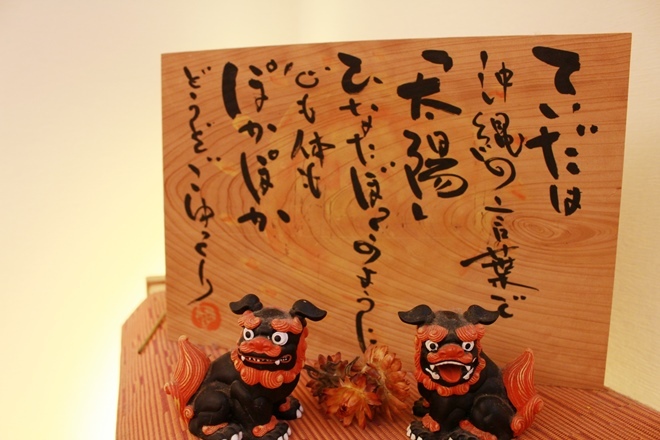 てぃだは
沖縄の言葉で
「太陽」
ひなたぼっこのように
心も体も
ぽかぽか
どうぞごゆっくり